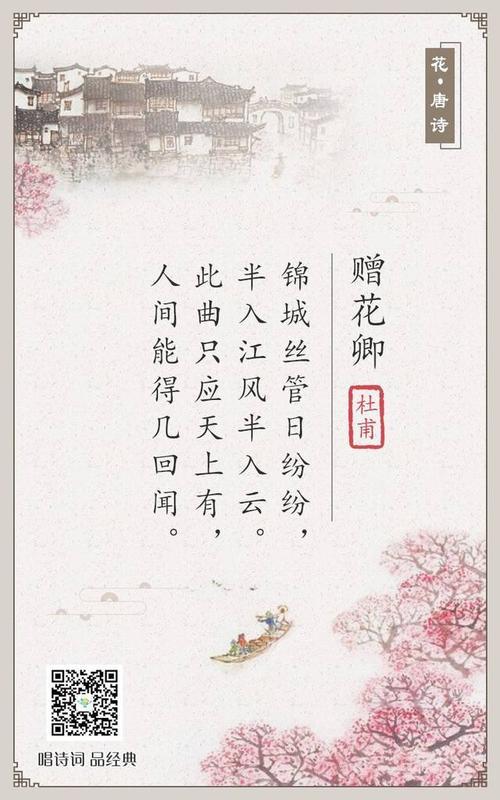 花·唐诗
赠花卿
杜甫
锦城丝管日纷纷，
半入江风半入云。
此曲只应天上有，
人间能得几回闻。
唱诗词 品经典